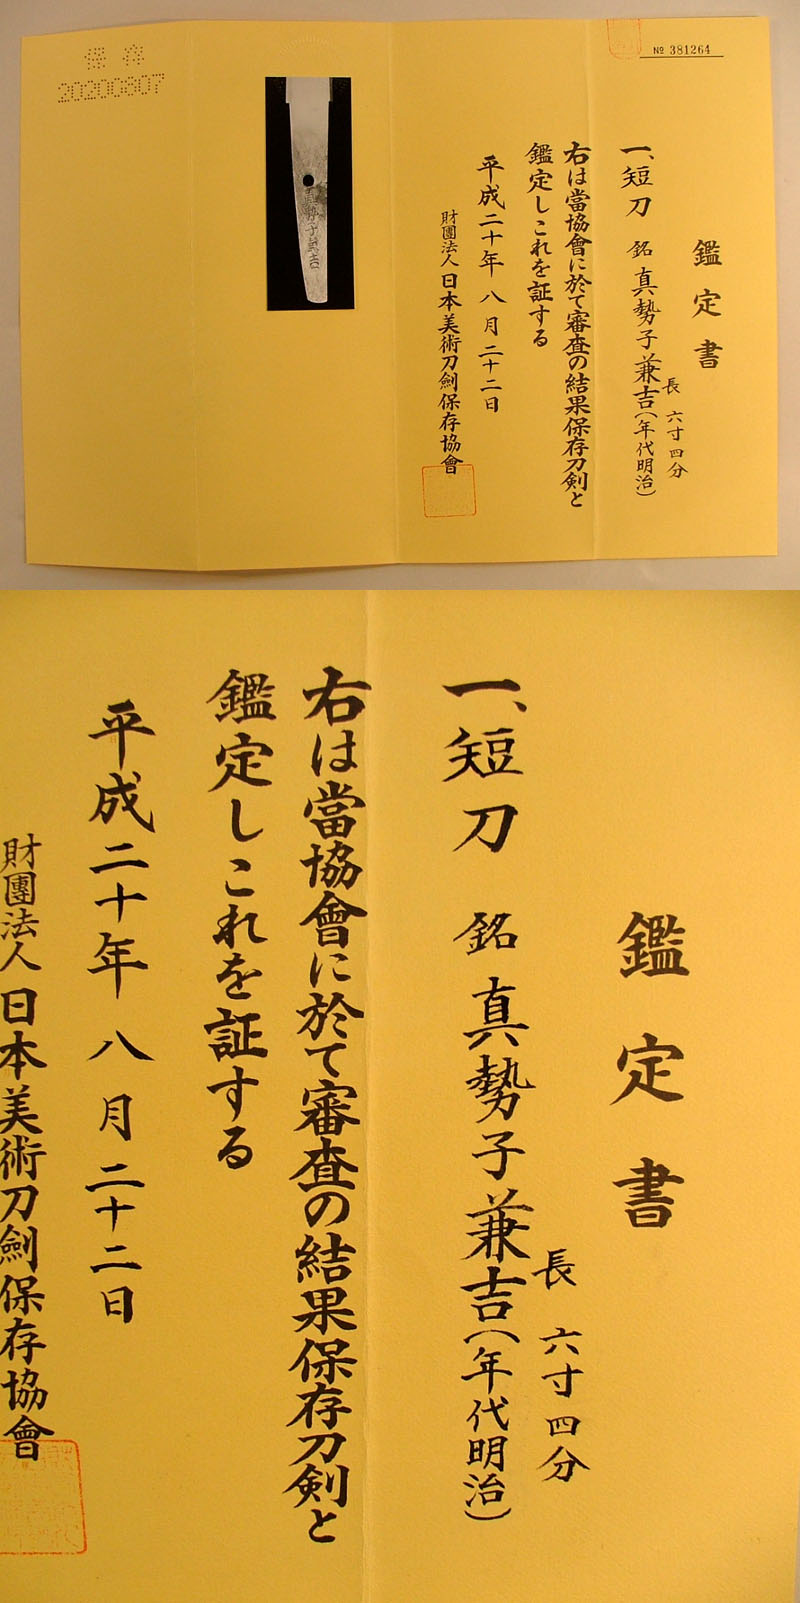 № 381264
鑑定書
一、短刀 銘 真勢子兼吉（年代明治）
長 六寸四分
右は當協會に於て審査の結果保存刀剣と
鑑定しこれを証する
平成二十年 八月 二十二日
財團法人 日本美術刀劍保存協會
保存
20200807
鑑定書
一、短刀 銘 真勢子兼吉（年代明治）
長 六寸四分
右は當協會に於て審査の結果保存刀剣と
鑑定しこれを証する
平成二十年 八月 二十二日
財團法人 日本美術刀劍保存協會